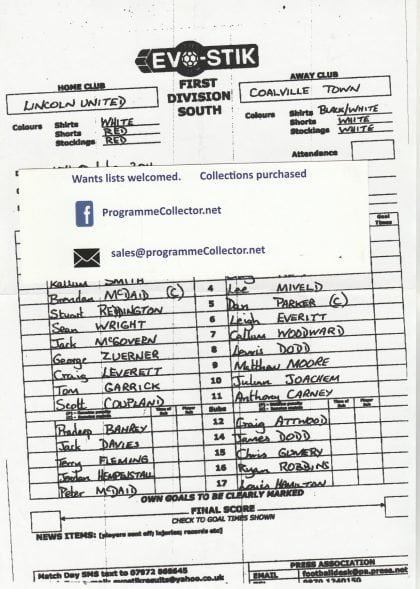 EVO-STIK
HOME CLUB
FIRST
DIVISION
SOUTH
AWAY CLUB
LINCOLN UNITED
COALVILLE TOWN
Colours Shirts WHITE
Shorts RED
Stockings RED
Colours Shirts BLACK/WHITE
Shorts WHITE
Stockings WHITE
Attendance
Wants lists welcomed. Collections purchased
ProgrammeCollector.net
sales@programmeCollector.net
Goal
Times
Kallum SMITH
Brendan McDAID (C) 4 Lee MIVELD
Stuart REDDINGTON 5 Dan PARKER (C)
Sean WRIGHT 6 Leigh EVERITT
Jack McGOVERN 7 Callum WOODWARD
George ZUERNER 8 DODD
Craig LEVERETT 9 Matthew MOORE
Tom GARRICK 10 Julian JOACHEM
Scott COUPLAND 11 Anthony CARNEY
Subs
Pradeep BAHREY 12 Craig ATTWOOD
Jack DAVIES 14 James DODD
Terry FLEMING 15 Chris GLOVERY
Jordan HEMPENSTALL 16 Ryan ROBBINS
Peter McDAID 17 Louis HAMILTON
OWN GOALS TO BE CLEARLY MARKED
FINAL SCORE
CHECK TO GOAL TIMES SHOWN
NEWS ITEMS: [players sent off; injuries; records etc]
Match Day SMS text to 07972 868645
PRESS ASSOCIATION
EMAIL footballdesk@pa.press.net